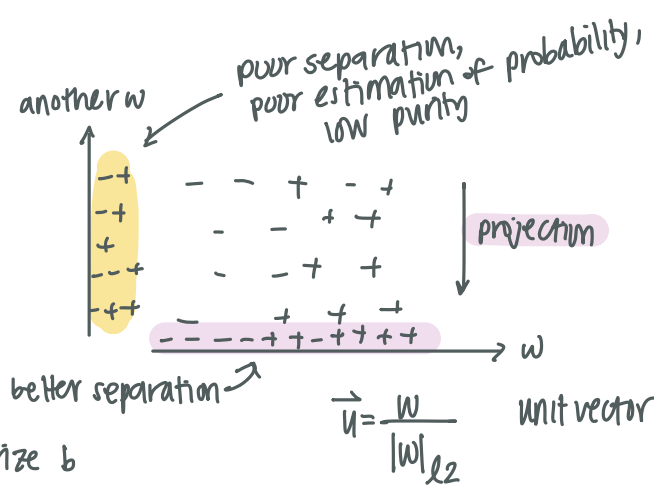 poor separation,
poor estimation of probability,
low purity
another w
- +
- +
+
- - +
- + +
- - + - +
- - + +
- - + +
- + + +
- - - - + + - + + + +
projection
w
better separation
u = w / |w| l2
unit vector
ize b